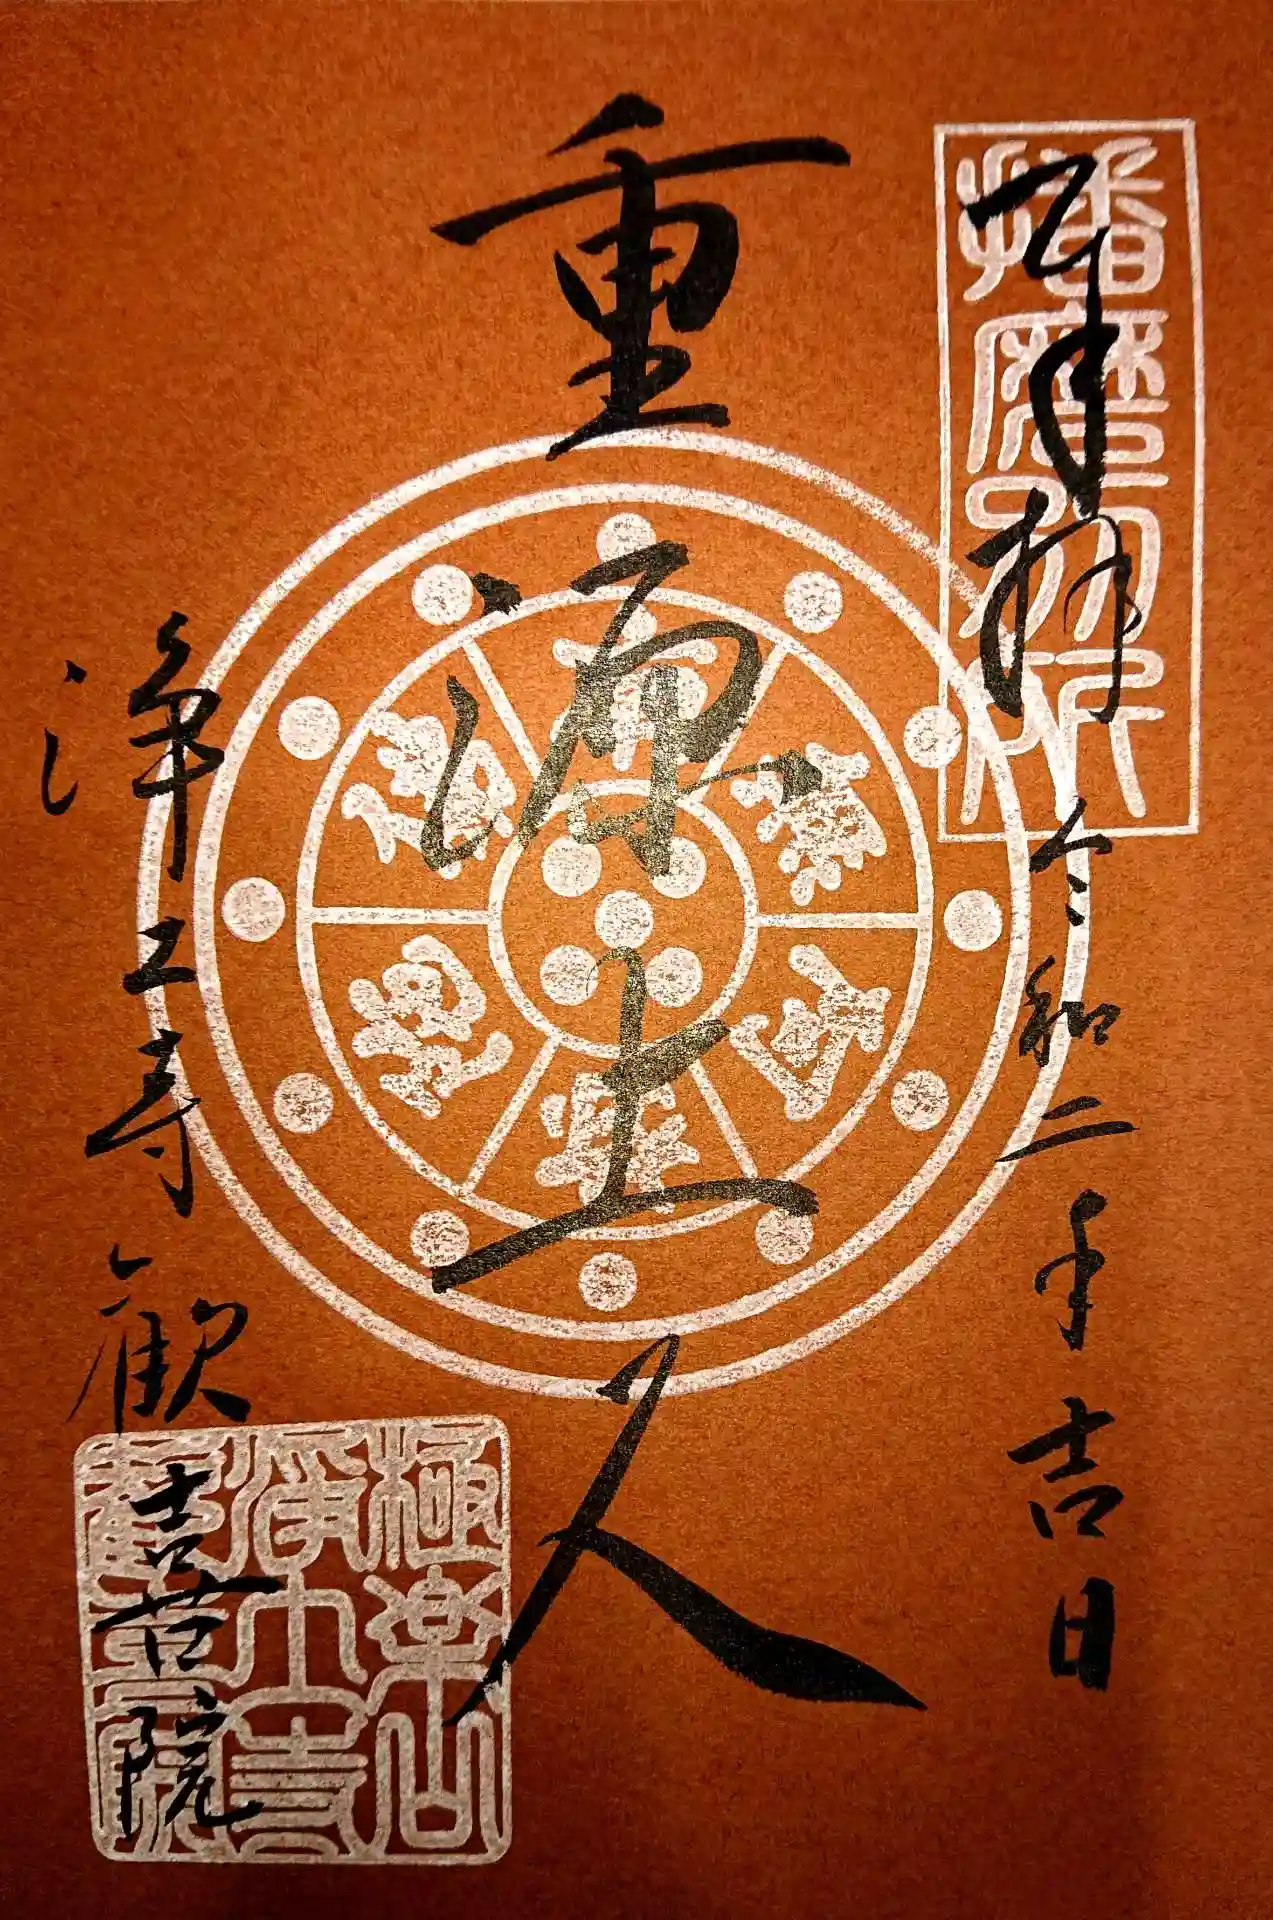 播磨別所
奉拝 令和二年吉日
重源上人
南無阿彌陀佛
浄土寺 歓喜院
極楽山
浄土寺
歓喜院